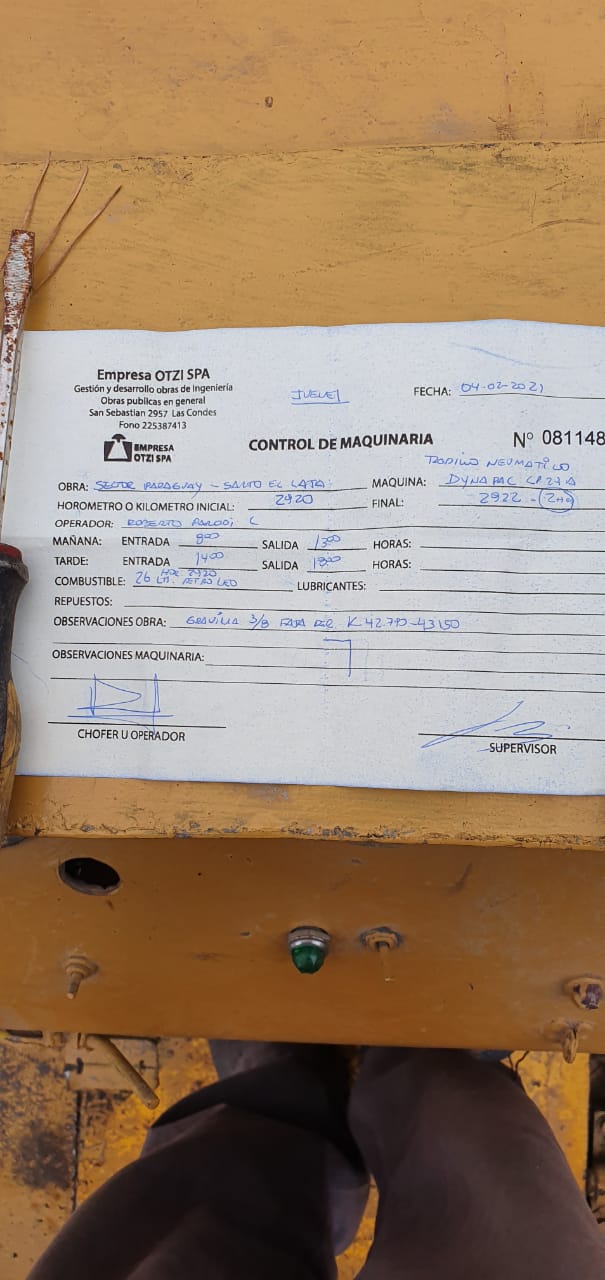 Empresa OTZI SPA
Gestión y desarrollo obras de Ingeniería
Obras publicas en general
San Sebastian 2957 Las Condes
Fono 225387413
EMPRESA
OTZI SPA
JUEVES
FECHA: 04-02-2021
CONTROL DE MAQUINARIA
N° 081148
RODILLO NEUMATICO
OBRA: SECTOR PARAGUAY - SALTO EL LATA MAQUINA: DYNAPAC CP274
HOROMETRO O KILOMETRO INICIAL: 2920 FINAL: 2922 -
OPERADOR: ROBERTO C
MAÑANA: ENTRADA 8:00 SALIDA 13:00 HORAS:
TARDE: ENTRADA 14:00 SALIDA 18:00 HORAS:
COMBUSTIBLE: 26 LTS. PETROLEO HOR 2920 LUBRICANTES:
REPUESTOS:
OBSERVACIONES OBRA: GRAVILLA 3/8 FAJA DER K 42.790-43150
OBSERVACIONES MAQUINARIA:
CHOFER U OPERADOR
SUPERVISOR